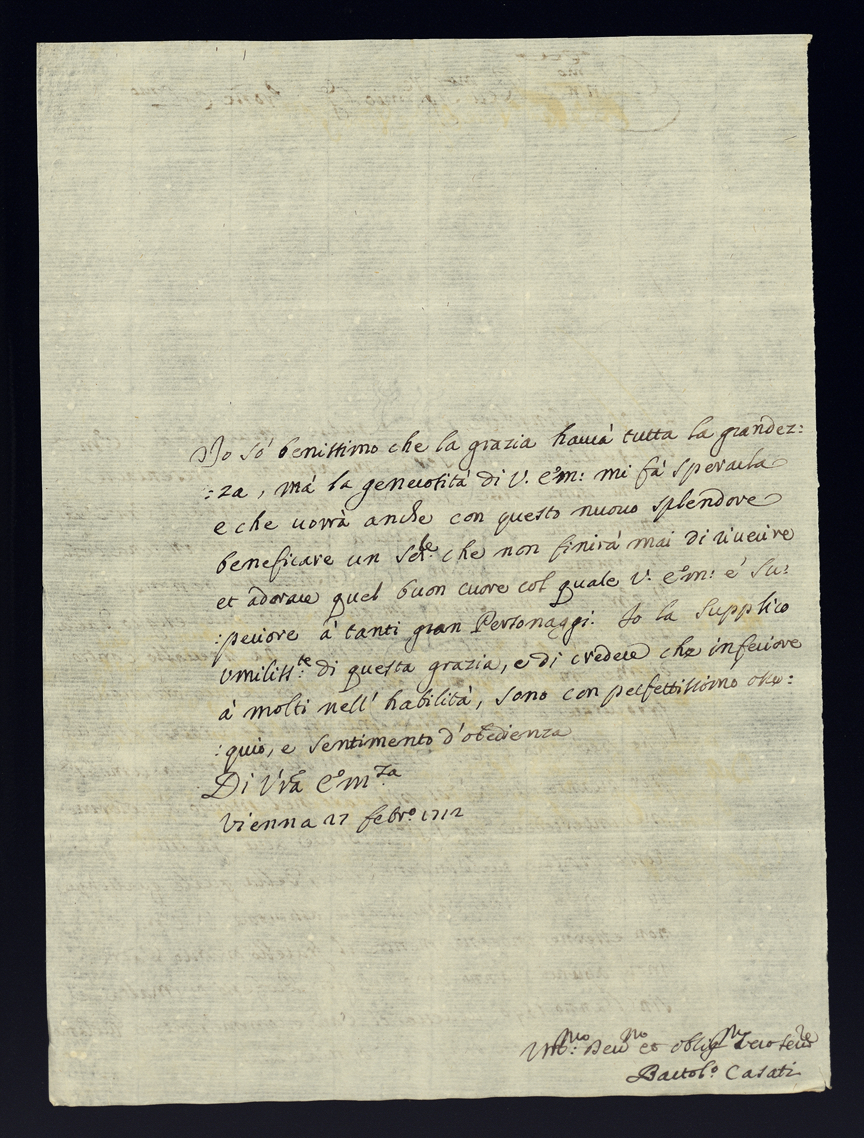 Io sò benissimo che la grazia haurà tutta la grandez:
:za, mà la generosità di V. Em: mi fà sperarla
e che vorrà anche con questo nuouo splendore
beneficare un Ser.re che non finirà mai di riuerire
et adorare quel buon cuore col quale V. Em: è Su:
:periore à tanti gran Personaggi. Io la Supplico
Umiliss.te di questa grazia, e di credere che inferiore
à molti nell' habilità, sono con perfettissimo osse:
:quio, e sentimento d'obedienza
Di Vra Em.za
Vienna 27 febr.o 1712
Um.mo Deu.mo et oblig.mo
Bartol.o Casati